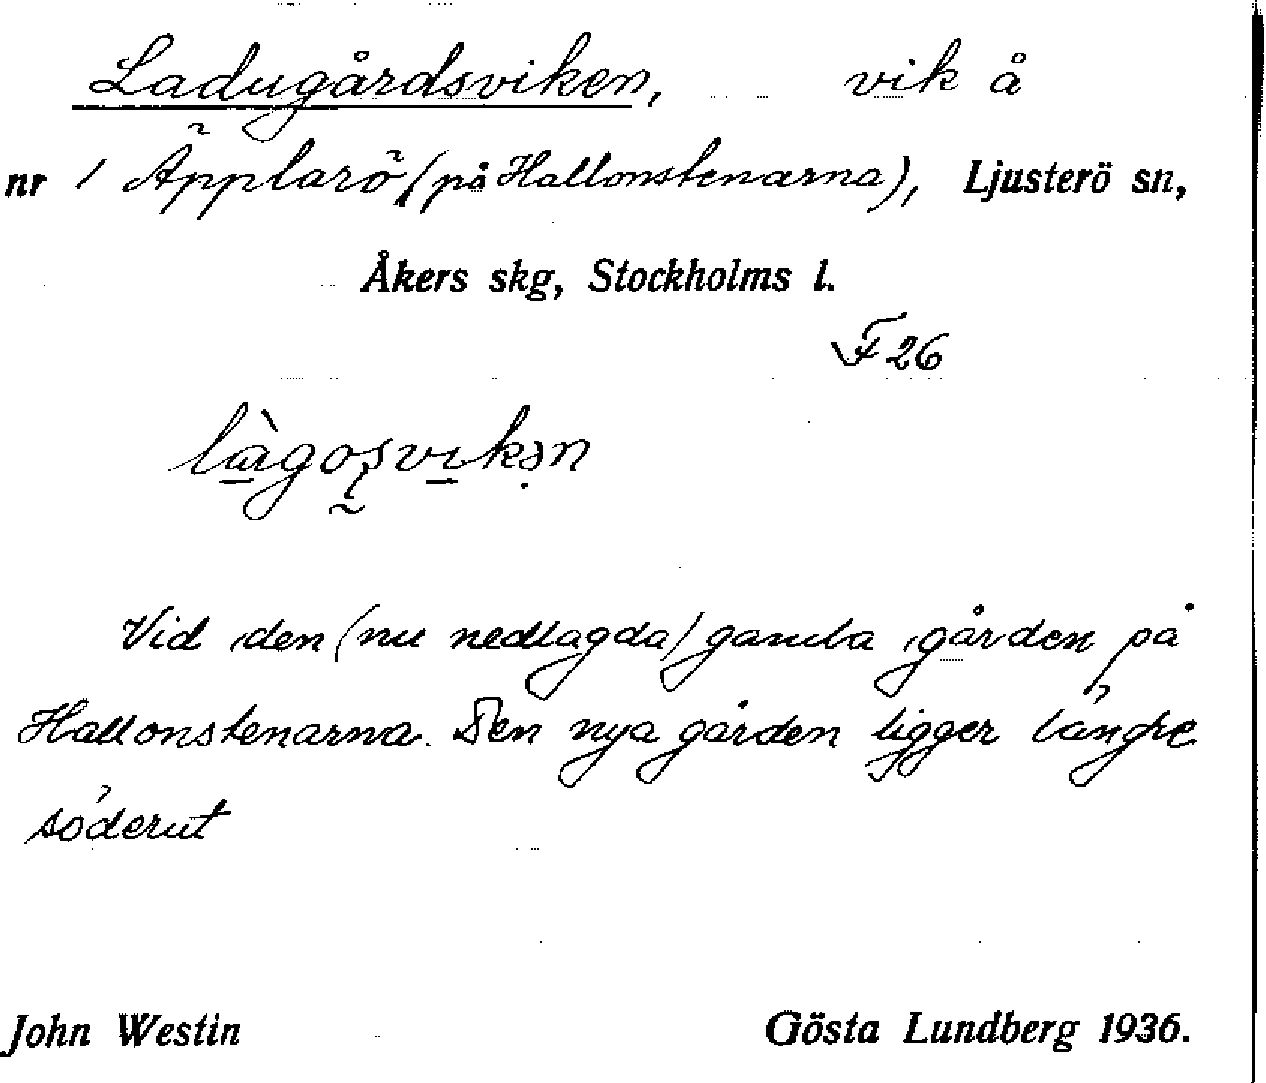 Ladugårdsviken, vik å
nr 1 Äpplarö (på Hallonstenarna), Ljusterö sn,
Åkers skg, Stockholms l.
F 26
Vid den (nu nedlagda) gamla gården på
Hallonstenarna. Den nya gården ligger längre
söderut
John Westin Gösta Lundberg 1936.